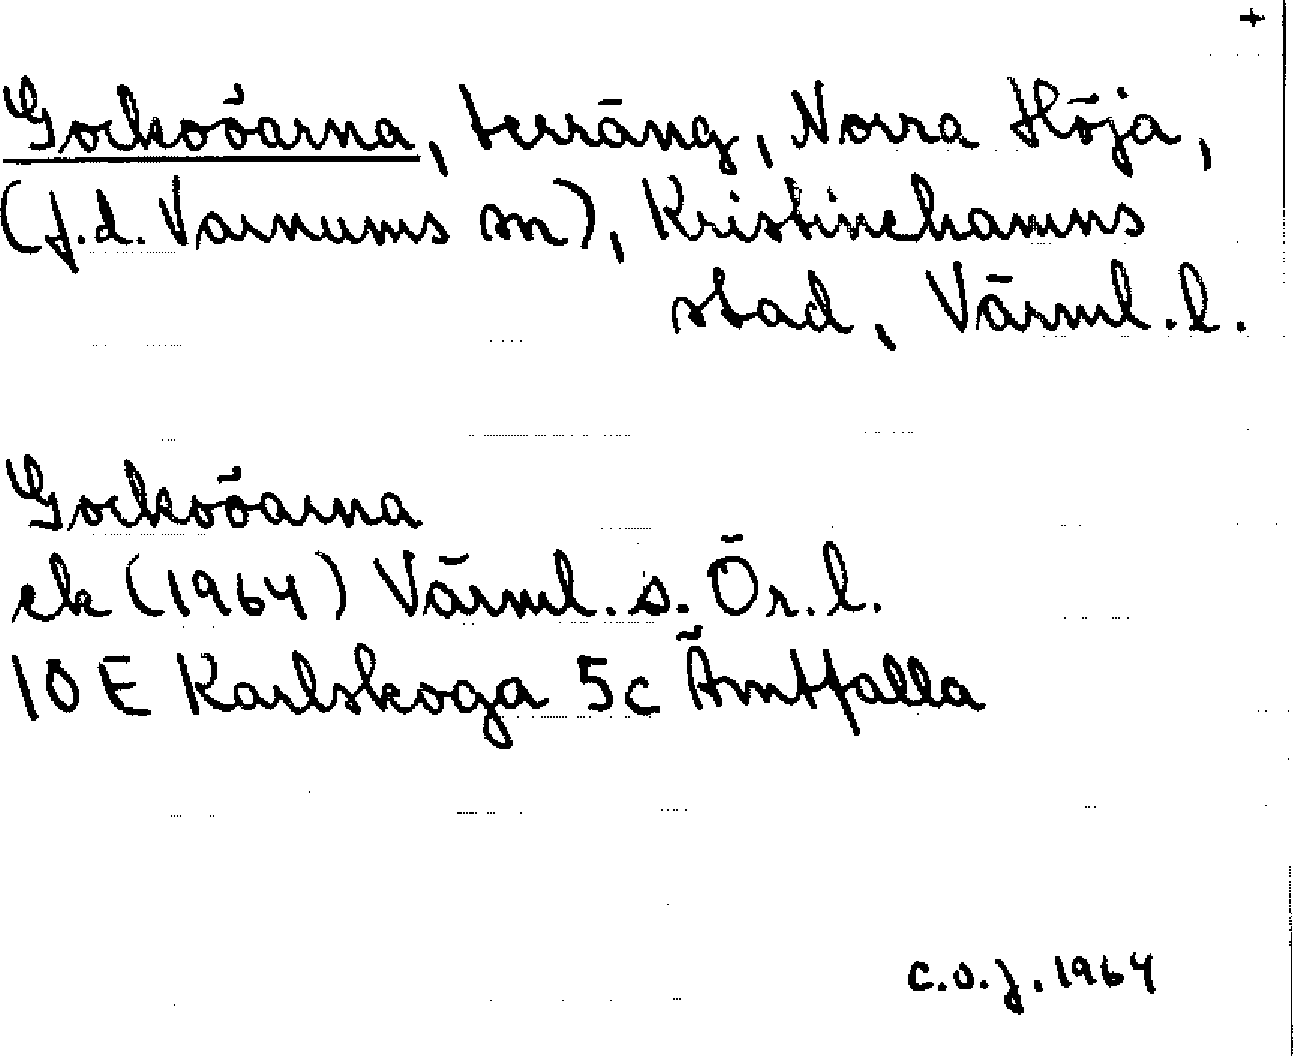 +
Gockoöarna, terräng, Norra Höja,
(f.d. Varnums sn), Kristinehamns
stad, Värml. l.
Gockoöarna
ek (1964) Värml. s. Ör. l.
10 E Karlskoga 5c Åmtfalla
C.O.J. 1964